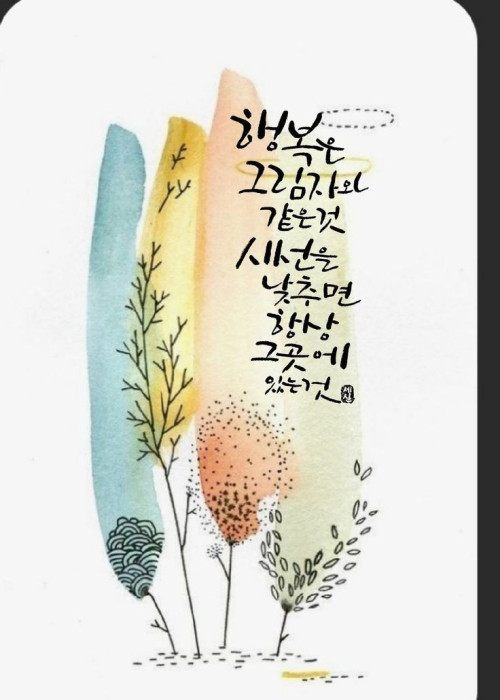 행복은
그림자와
같은것
시선을
낮추면
항상
그곳에
있는것